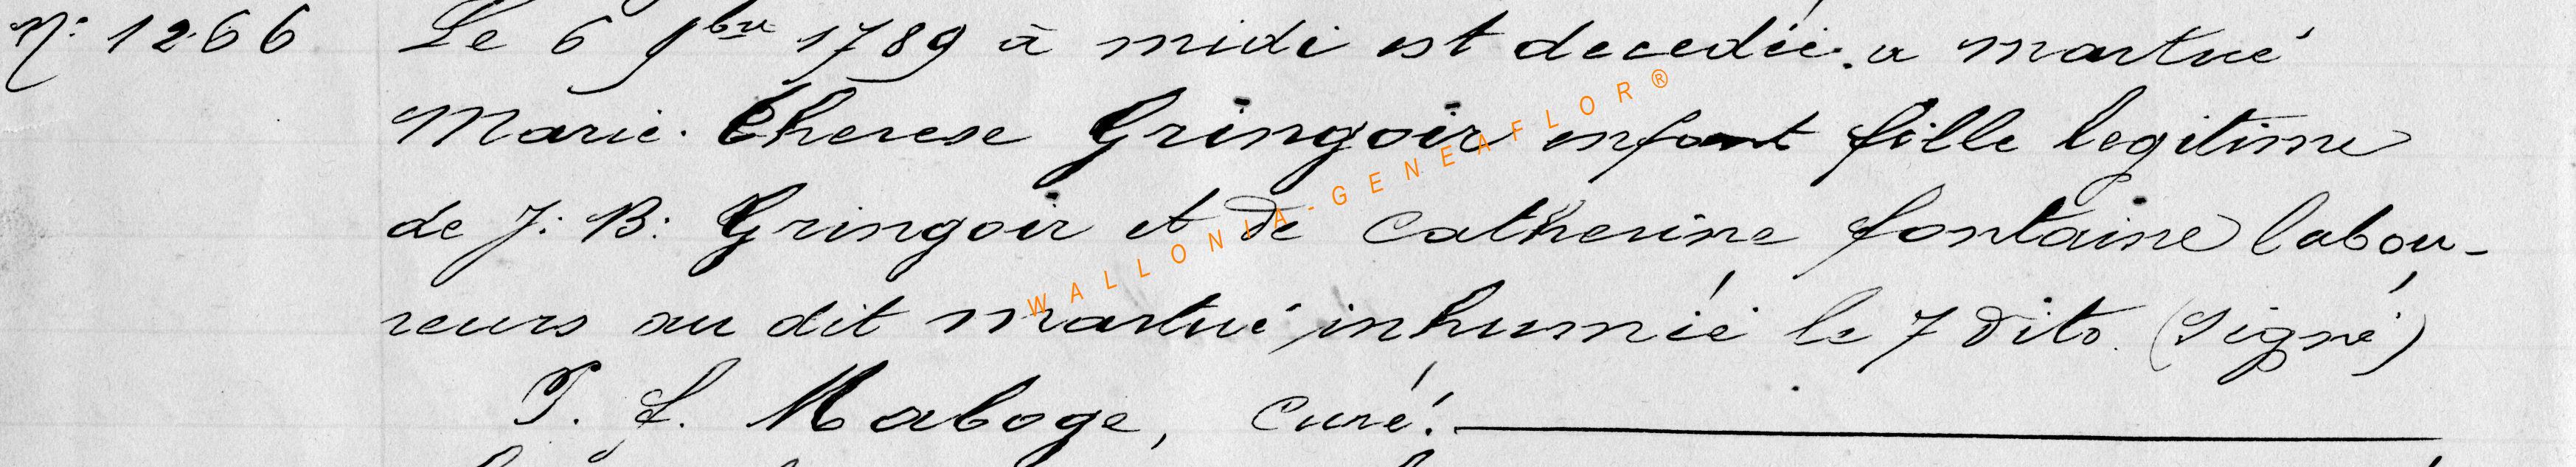 N: 1266 Le 6 9bre 1789 à midi est decedée. a martué
Marie. Therese Gringoir enfant fille legitime
de J: B: Gringoir et de Catherine fontaine labou-
reurs au dit martué inhumée le 7 dito. (signé)
P. L. Maboge, Curé.
WALLONIA-GENEAFLOR®